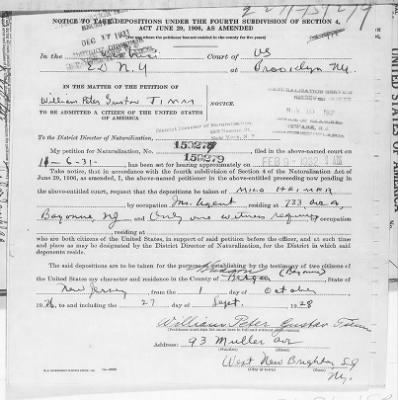 NOTICE TO TAKE DEPOSITIONS UNDER THE FOURTH SUBDIVISION OF SECTION 4,
ACT JUNE 29, 1906, AS AMENDED
DEC 17 1931
In the District Court of US
E D N.Y at Brooklyn Ny.
IN THE MATTER OF THE PETITION OF
William Peter Gustav TIMM
NOTICE.
TO BE ADMITTED A CITIZEN OF THE UNITED STATES
OF AMERICA
District Director of Naturalization,
New York, N.Y.
To the District Director of Naturalization,
153279
My petition for Naturalization, No. 153279 filed in the above-named court on
11-6-31 has been set for hearing approximately on FEB 9 - 1932
Take notice, that in accordance with the fourth subdivision of Section 4 of the Naturalization Act of
June 29, 1906, as amended, I, the above-named petitioner in the above-entitled proceeding now pending in
the above-entitled court, request that the depositions be taken of
by occupation Ins. Agent residing at 773 Ave A,
Bayonne, NJ and Only one witness required occupation
residing at
who are both citizens of the United States, in support of said petition before the officer, and at such time and
place as may be designated by the District Director of Naturalization, for the District in which said
deponents reside.
The said depositions are to be taken for the purpose of establishing by the testimony of two citizens of
the United States my character and residence in the County of Hudson Bergen (Bayonne), State of
New Jersey from the 1 day of October
1926, to and including the 27 day of Sept. 1928
William Peter Gustav Timm
Address: 93 Muller Ave
West New Brighton S.I.
Ny.
UNITED STATES OF AMERICA